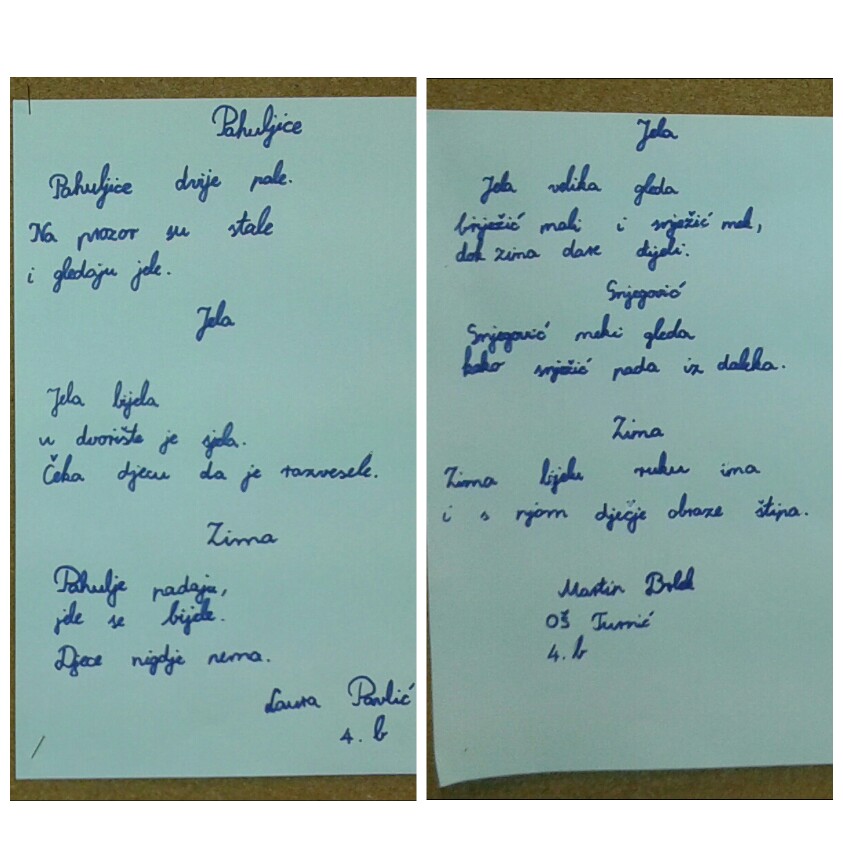 Pahuljice
Pahuljice dvije pale.
Na prozor su stale
i gledaju jele.
Jela
Jela bijela
u dvorište je sjela.
Čeka djecu da je razvesele.
Zima
Pahulje padaju,
jele se bijele.
Djece nigdje nema.
Laura Pavlić
4. b
Jela
Jela velika gleda
brježić mali i snježić mek,
dok zima dare dijeli.
Snjegović
Snjegović meki gleda
kako snježić pada iz daleka.
Zima
Zima bijelu ruku ima
i s njom dječje obraze štipa.
Martin
OŠ Turnić
4. b